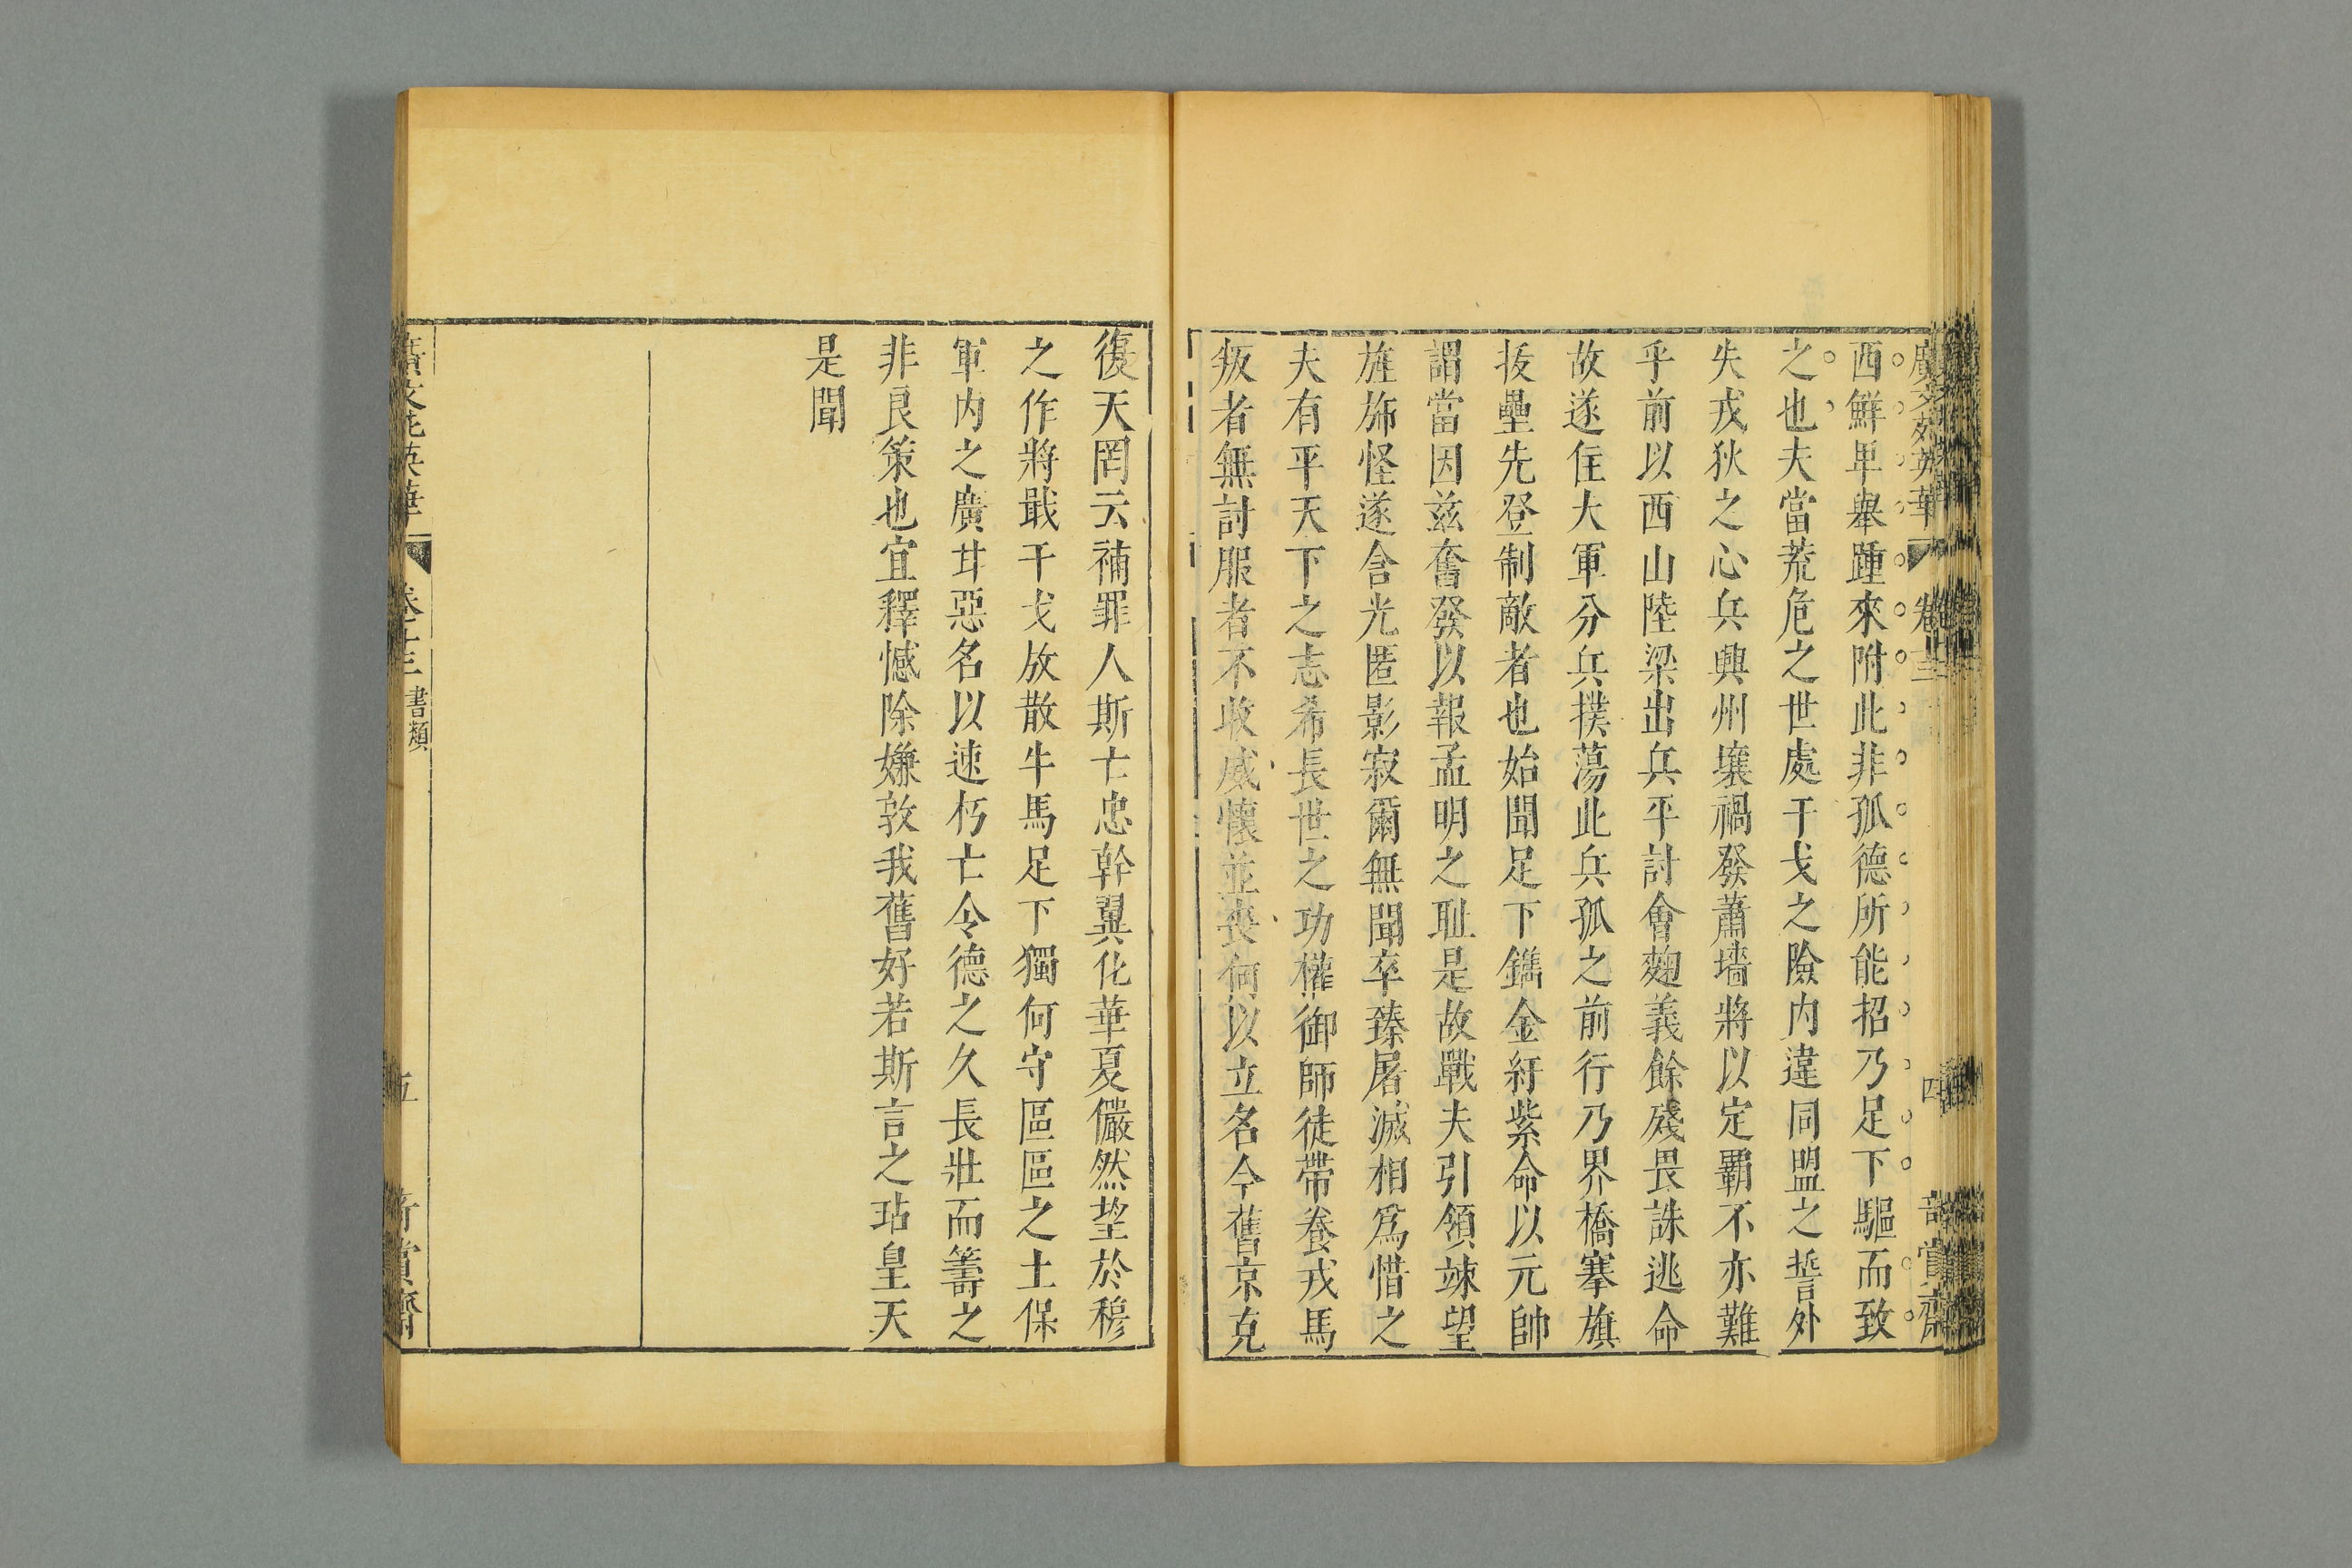 廣文苑英華 卷十三 四 奇賞齋
西鮮卑舉踵來附此非孤德所能招乃足下驅而致
之也夫當荒危之世處干戈之險内違同盟之誓外
失戎狄之心兵興州壤禍發蕭墻將以定覇不亦難
乎前以西山陸梁出兵平討會麴義餘殘畏誅逃命
故遂住大軍分兵撲蕩此兵孤之前行乃界橋搴旗
拔壘先登制敵者也始聞足下鐫金紆紫命以元帥
謂當因兹奮發以報孟明之耻是故戰夫引領竦望
旌斾怪遂含光匿影寂爾無聞卒臻屠滅相爲惜之
夫有平天下之志希長世之功權御師徒帶養戎馬
叛者無討服者不收威懷並喪何以立名今舊京克
復天罔云補罪人斯亡忠幹翼化華夏儼然望於穆
之作將戢干戈放散牛馬足下獨何守區區之土保
軍内之廣甘惡名以速朽亡令德之久長壯而籌之
非良策也宜釋憾除嫌敦我舊好若斯言之玷皇天
是聞
廣文苑英華 卷十三 書類 五 奇賞齋